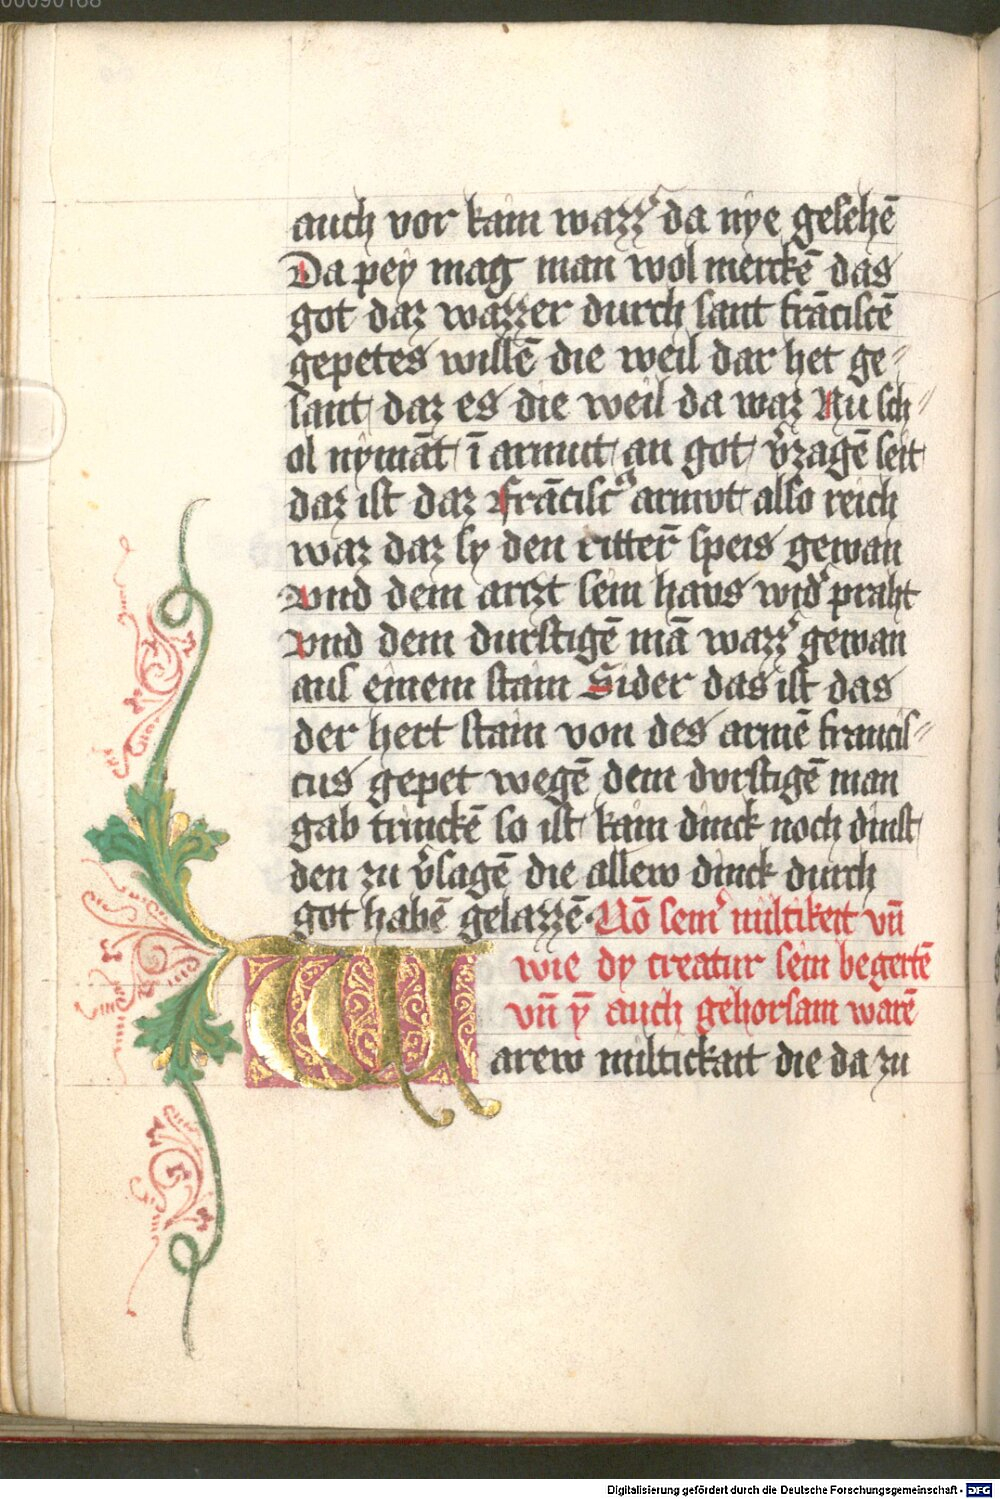 00090168
auch vor kain wazz͛ da nye gesehē
Da pey mag man wol merckē das
got daz wazzer durch sant frāciscē
gepetes willē die weil dar het ge⸗
sant daz es die weil da waz Nu sch⸗
ol nymāt ī armut an got v͛zagē seit
daz ist daz Frācisc⁹ armvt also reich
waz daz sy den ritter̄ speis gewan
vnd dem artzt sein havs wid͛ praht
vnd dem durstigē mā wazz͛ gewan
aus einem stain Sider das ist das
der hert stain von des armē francis⸗
cus gepet wegē dem dvrstigē man
gab trinckē so ist kain dinck noch dinst
den zu v͛sagē die allew dinck durch
got habē gelazzē Uō sein͛ miltikeit vn̄
wie dy creatur sein begertē
vn̄ ȳ auch gehorsam warē
Warew miltickait die da zu
Digitalisierung gefördert durch die Deutsche Forschungsgemeinschaft - DFG